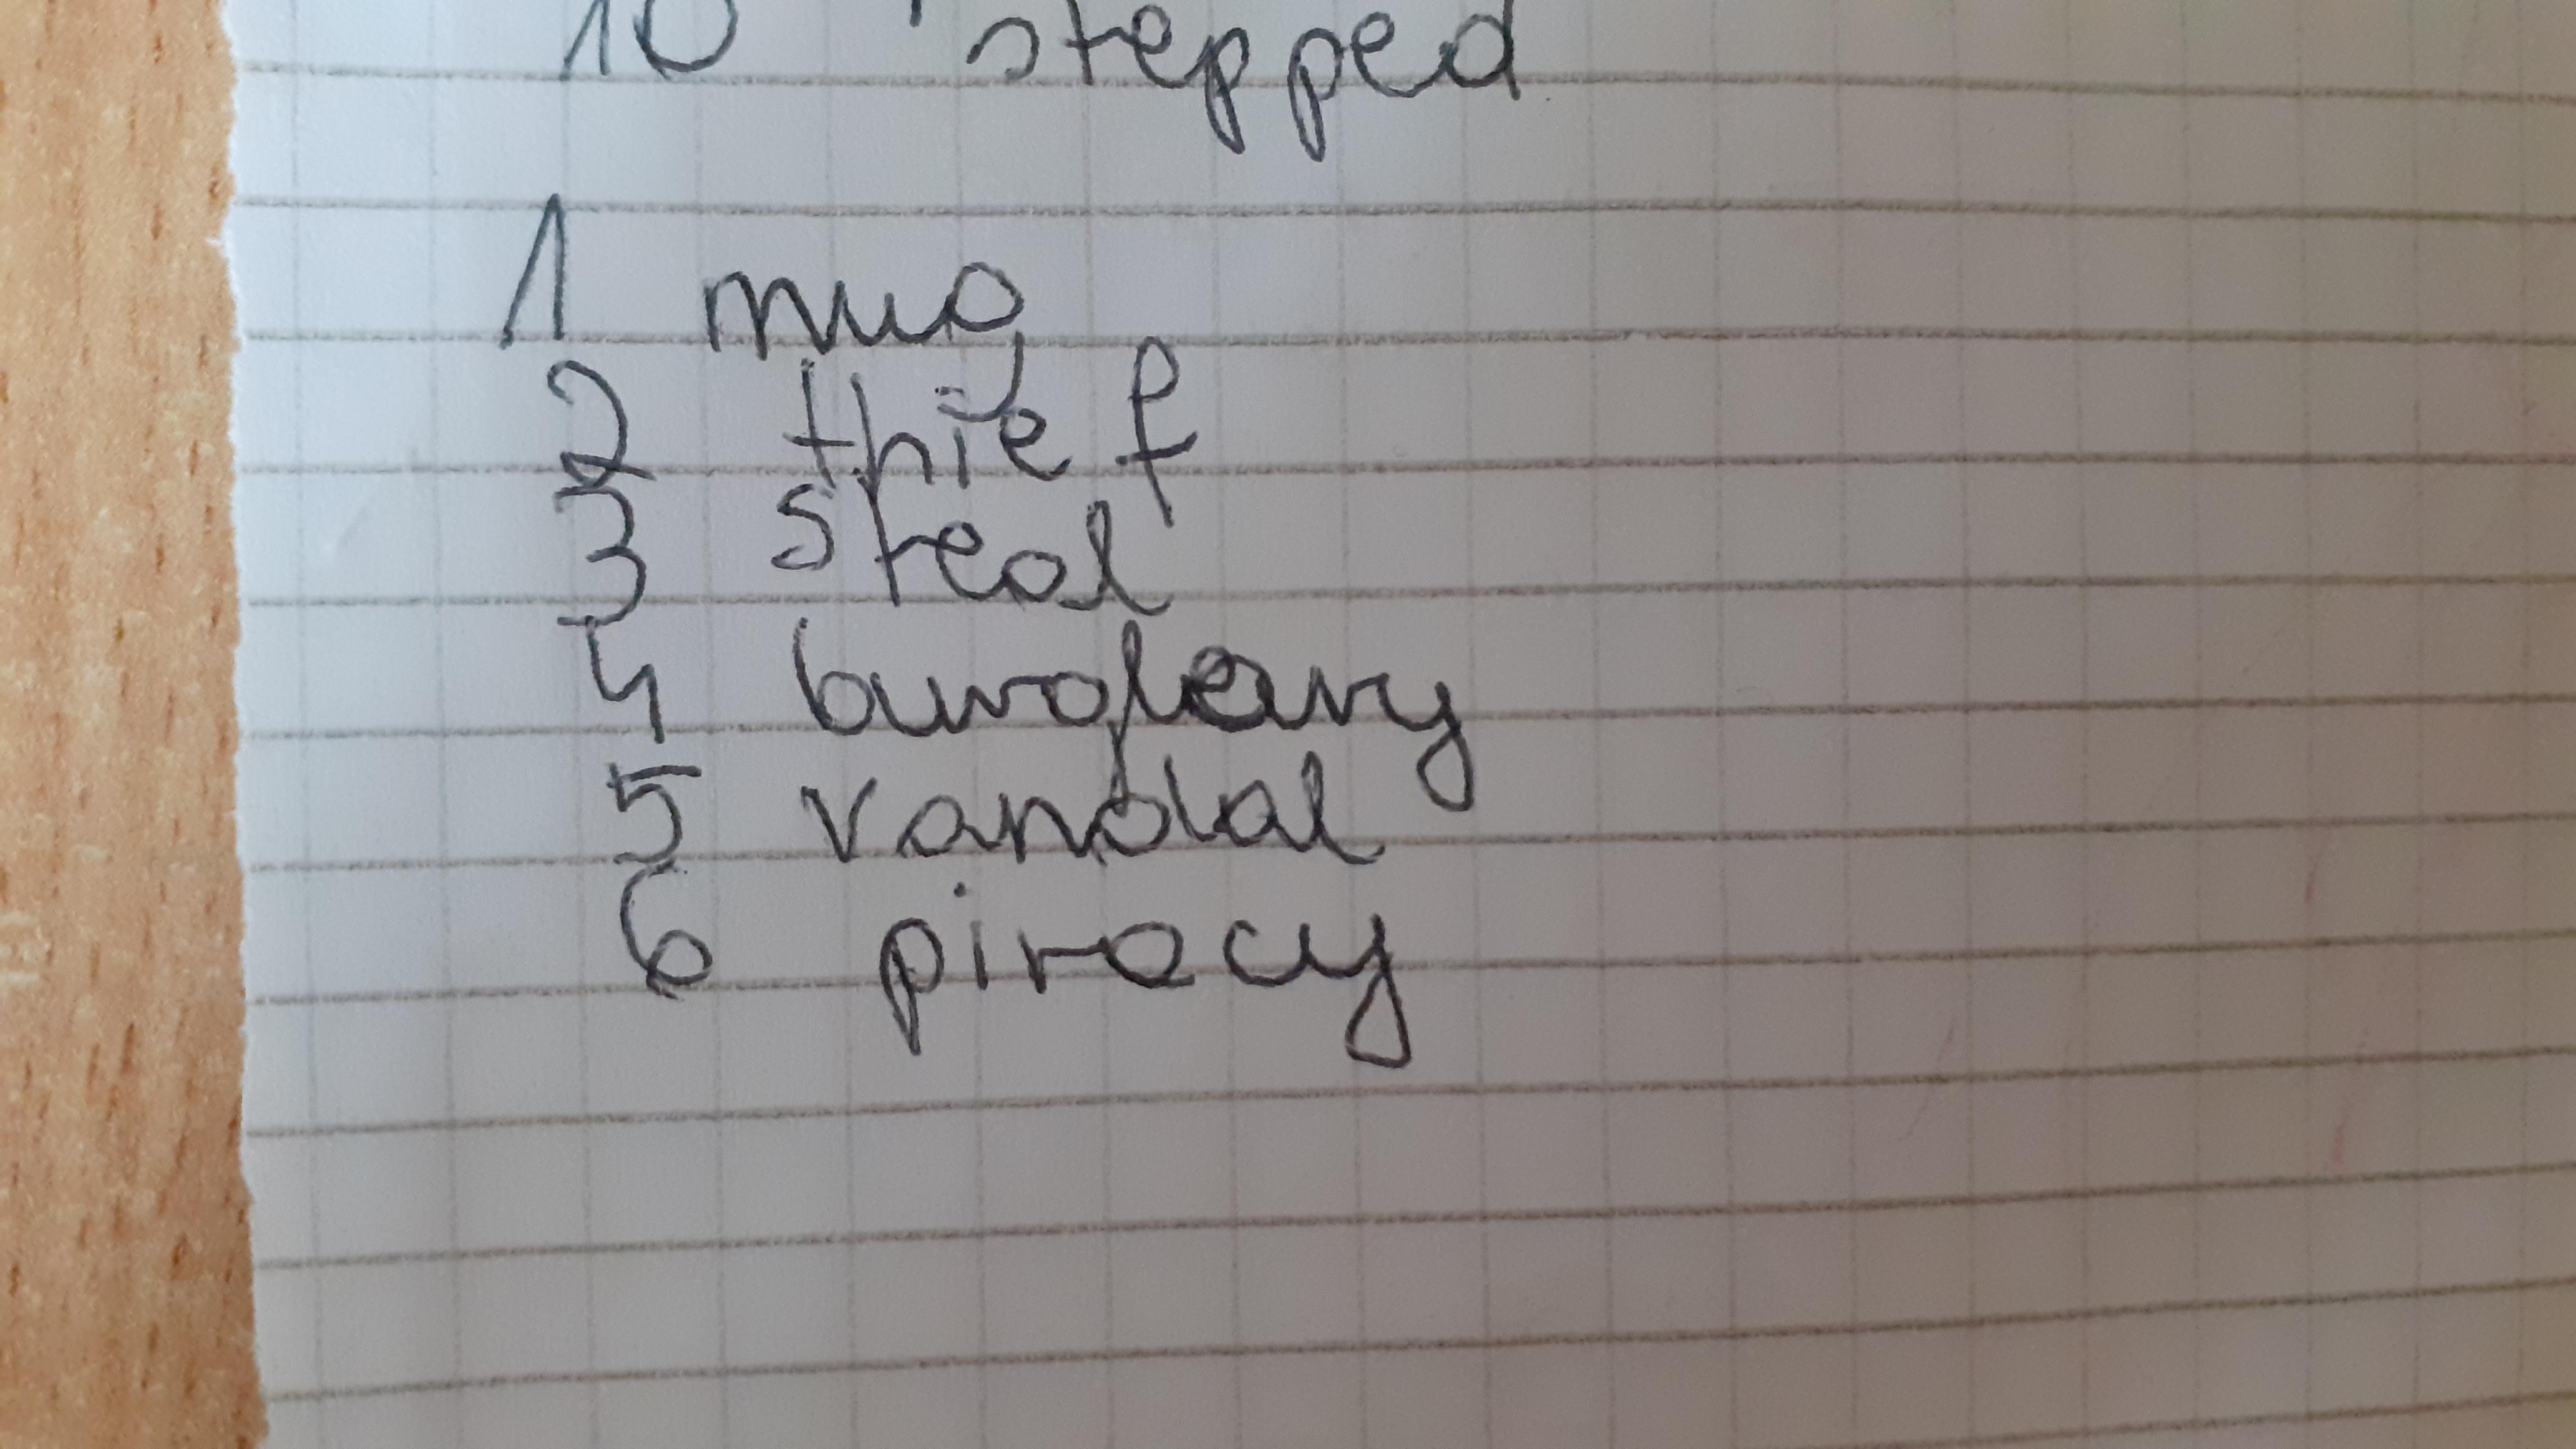 10 stepped
1 mug
2 thief
3 steal
4 burglary
5 vandal
6 piracy